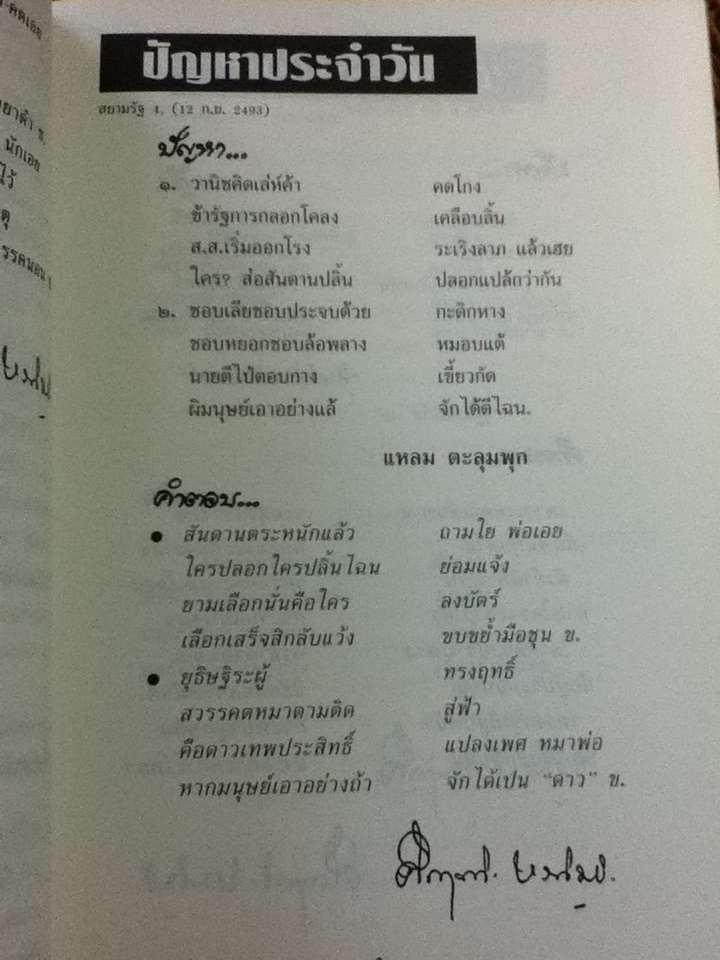 ปัญหาประจำวัน
สยามรัฐ 4, (12 ก.ย. 2493)
ปัญหา...
๑. วานิชคิดเล่ห์ค้า คดโกง
ข้ารัฐการกลอกโคลง เคลือบลิ้น
ส.ส.เริ่มออกโรง ระเริงลาภ แล้วเฮย
ใคร? ส่อสันดานปลิ้น ปลอกแปล้กว่ากัน
๒. ชอบเลียชอบประจบด้วย กะดิกหาง
ชอบหยอกชอบล้อพลาง หมอบแต้
นายตีไป่ตอบกาง เขี้ยวกัด
ผิมนุษย์เอาอย่างแล้ จักได้ดีไฉน.
แหลม ตะลุมพุก
คำตอบ...
● สันดานตระหนักแล้ว ถามใย พ่อเอย
ใครปลอกใครปลิ้นไฉน ย่อมแจ้ง
ยามเลือกนั่นคือใคร ลงบัตร์
เลือกเสร็จสิกลับแว้ง ขบขย้ำมือชุน ข.
● ยุธิษฐิระผู้ ทรงฤทธิ์
สวรรคตหมาตามติด สู่ฟ้า
คือดาวเทพประสิทธิ์ แปลงเพศ หมาพ่อ
หากมนุษย์เอาอย่างถ้า จักได้เปน "ดาว" ข.